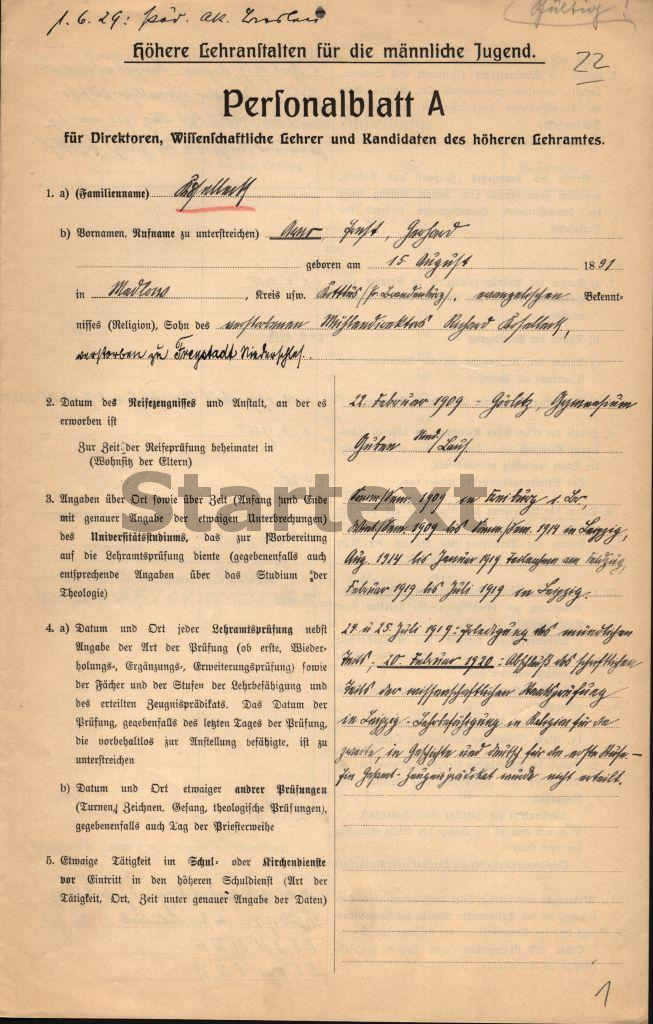 1.6.29: Päd. Ak. Breslau
Gültig!
Höhere Lehranstalten für die männliche Jugend.
22
Personalblatt A
für Direktoren, Wissenschaftliche Lehrer und Kandidaten des höheren Lehramtes.
1. a) (Familienname) Koselleck
b) Vornamen, Rufname zu unterstreichen) Arno, Ernst, Gerhard
geboren am 15. August 1891
in Madlow, Kreis usw. Kottbus (Pr. Brandenburg), evangelischen Bekennt-
nisses (Religion), Sohn des verstorbenen Mühlendirektors Richard Koselleck,
verstorben zu Freystadt Niederschles.
2. Datum des Reifezeugnisses und Anstalt, an der es
erworben ist
Zur Zeit der Reifeprüfung beheimatet in
(Wohnsitz der Eltern)
22. Februar 1909 - Görlitz, Gymnasium
Guben Nied/Laus.
3. Angaben über Ort sowie über Zeit (Anfang und Ende
mit genauer Angabe der etwaigen Unterbrechungen)
des Universitätsstudiums, das zur Vorbereitung
auf die Lehramtsprüfung diente (gegebenenfalls auch
entsprechende Angaben über das Studium der
Theologie)
Somm/Sem. 1909 in Freiburg i. Br.,
Wint/Sem. 1909 bis Somm/Sem. 1914 in Leipzig,
Aug. 1914 bis Januar 1919 Teilnahme am Feldzug,
Februar 1919 bis Juli 1919 in Leipzig.
Startext
4. a) Datum und Ort jeder Lehramtsprüfung nebst
Angabe der Art der Prüfung (ob erste, Wieder-
holungs-, Ergänzungs-, Erweiterungsprüfung) sowie
der Fächer und der Stufen der Lehrbefähigung und
des erteilten Zeugnisprädikats. Das Datum der
Prüfung, gegebenfalls des letzten Tages der Prüfung,
die vorbehaltlos zur Anstellung befähigte, ist zu
unterstreichen
24. u 25. Juli 1919: Erledigung des mündlichen
Teils, 20. Februar 1920: Abschluß des schriftlichen
Teils der wissenschaftlichen Staatsprüfung
in Leipzig - Lehrbefähigung in Religion für die
zweite, in Geschichte und Deutsch für die erste Stufe. -
Ein Gesamt-Zeugnisprädikat wurde nicht erteilt.
b) Datum und Ort etwaiger andrer Prüfungen
(Turnen, Zeichnen, Gesang, theologische Prüfungen),
gegebenenfalls auch Tag der Priesterweihe
5. Etwaige Tätigkeit im Schul- oder Kirchendienste
vor Eintritt in den höheren Schuldienst (Art der
Tätigkeit, Ort, Zeit unter genauer Angabe der Daten)
1